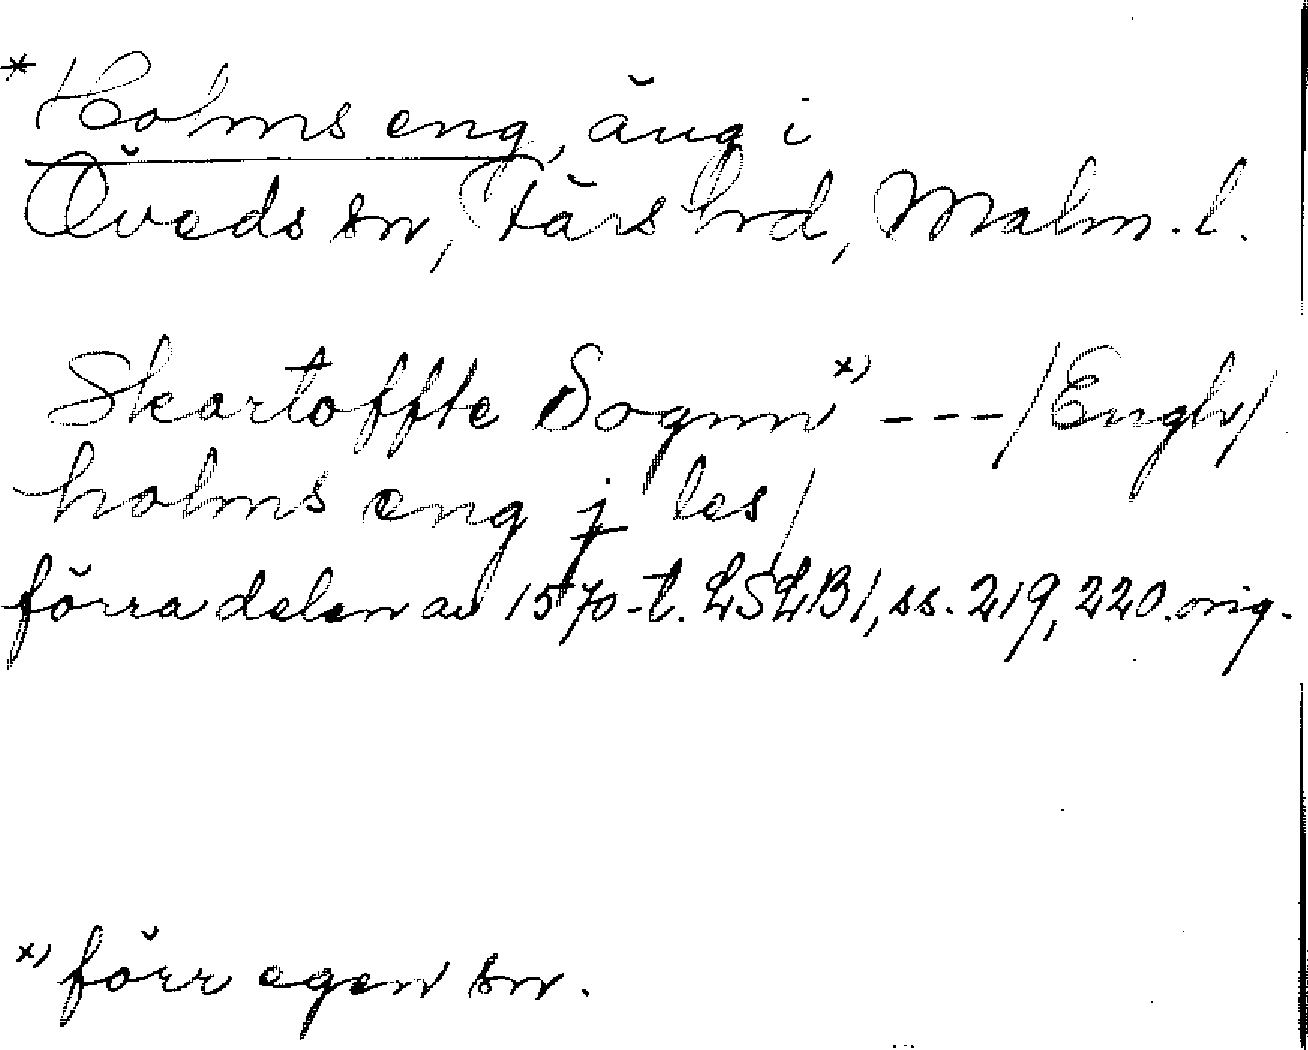 * Holms eng, äng i
Öveds sn, Färs hrd, Malm. l.
Skartoffte Sognn x) --- / Engh /
holms eng j les /
förra delen av 1570-t. LSLB 1, ss. 219, 220. orig.
x) förr egen sn.